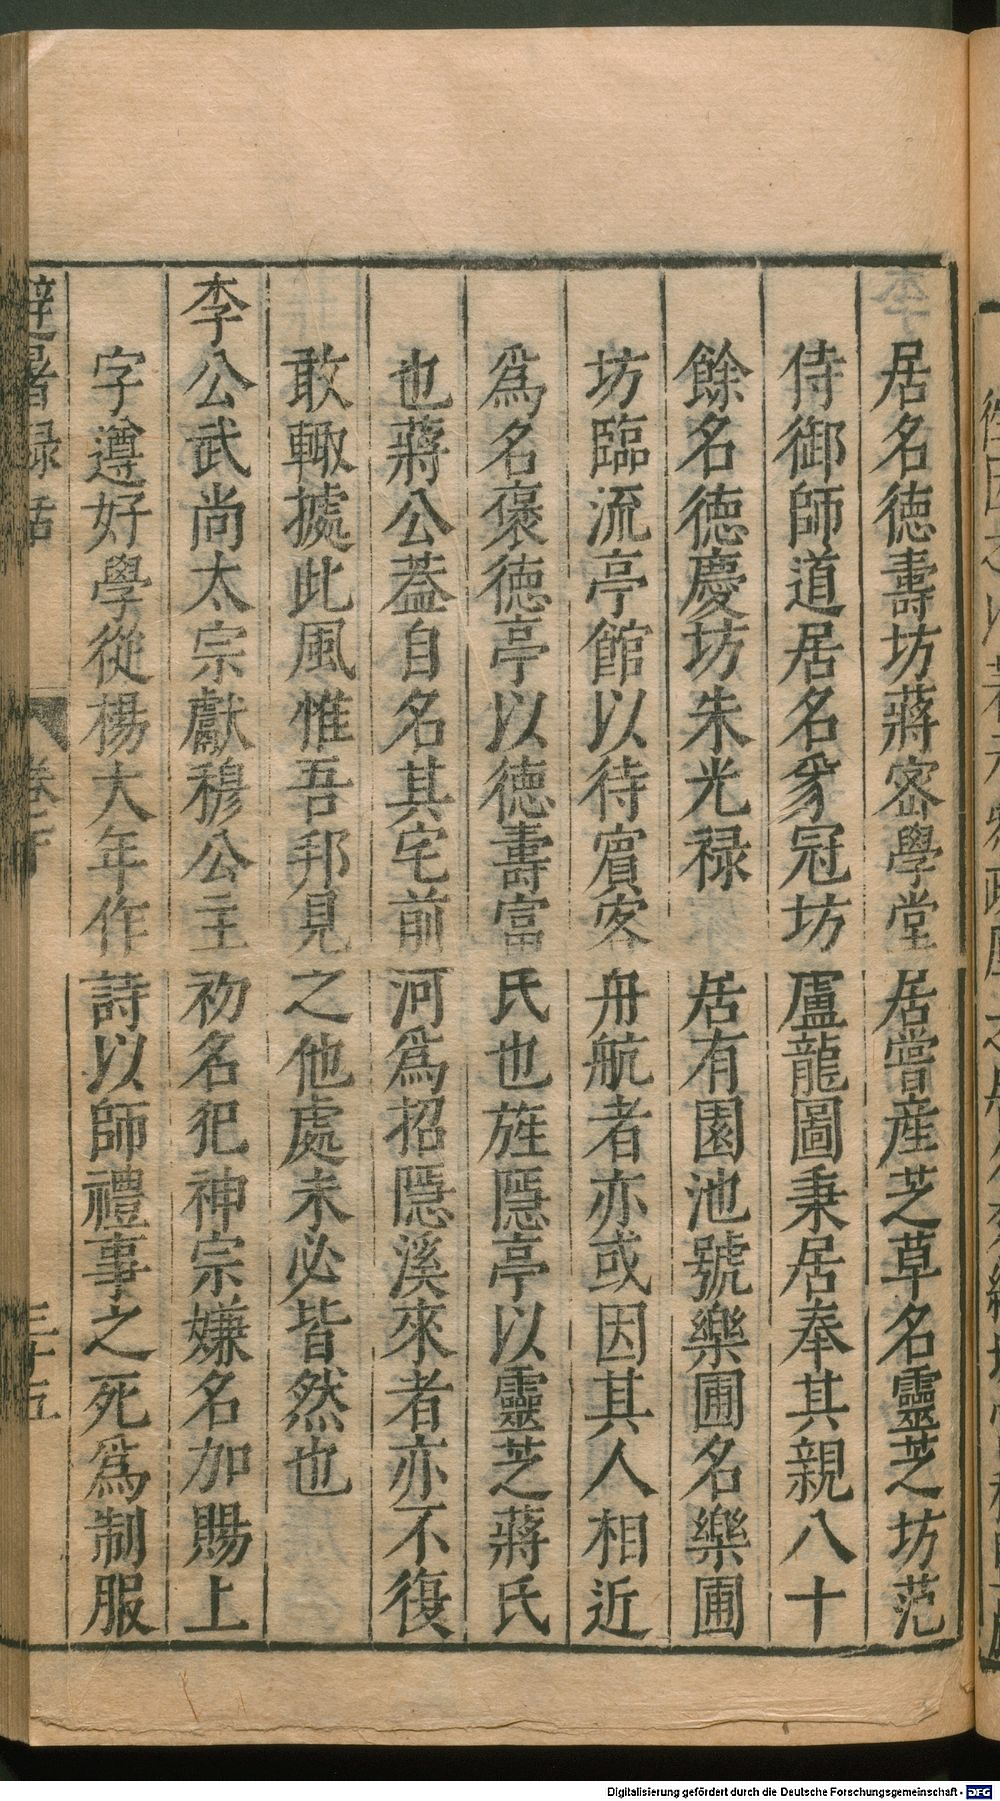 居名德壽坊蔣密學堂居嘗產芝草名靈芝坊范
侍御師道居名豸冠坊盧龍圖秉居奉其親八十
餘名德慶坊朱光祿居有園池號樂圃名樂圃
坊臨流亭館以待賓客舟航者亦或因其人相近
爲名褒德亭以德壽富氏也旌隱亭以靈芝蔣氏
也蔣公蓋自名其宅前河爲招隱溪來者亦不復
敢輙據此風惟吾邦見之他處未必皆然也
李公武尚太宗獻穆公主初名犯神宗嫌名加賜上
字遵好學從楊大年作詩以師禮事之死爲制服
避暑錄話 卷下 三十五
Digitalisierung gefördert durch die Deutsche Forschungsgemeinschaft - DFG